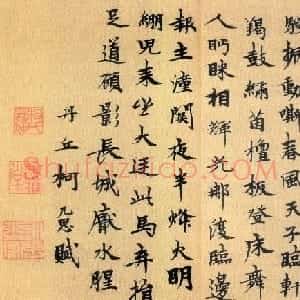 振動嘶春風天子臨軒
羯鼓繡茵檀板登床舞
人眄睞相輝光郎復臨邊
報主潼關夜半烽火明
綳兒來坐大此馬弃捐
足道顧影長城厭水腥
丹丘柯九思賦